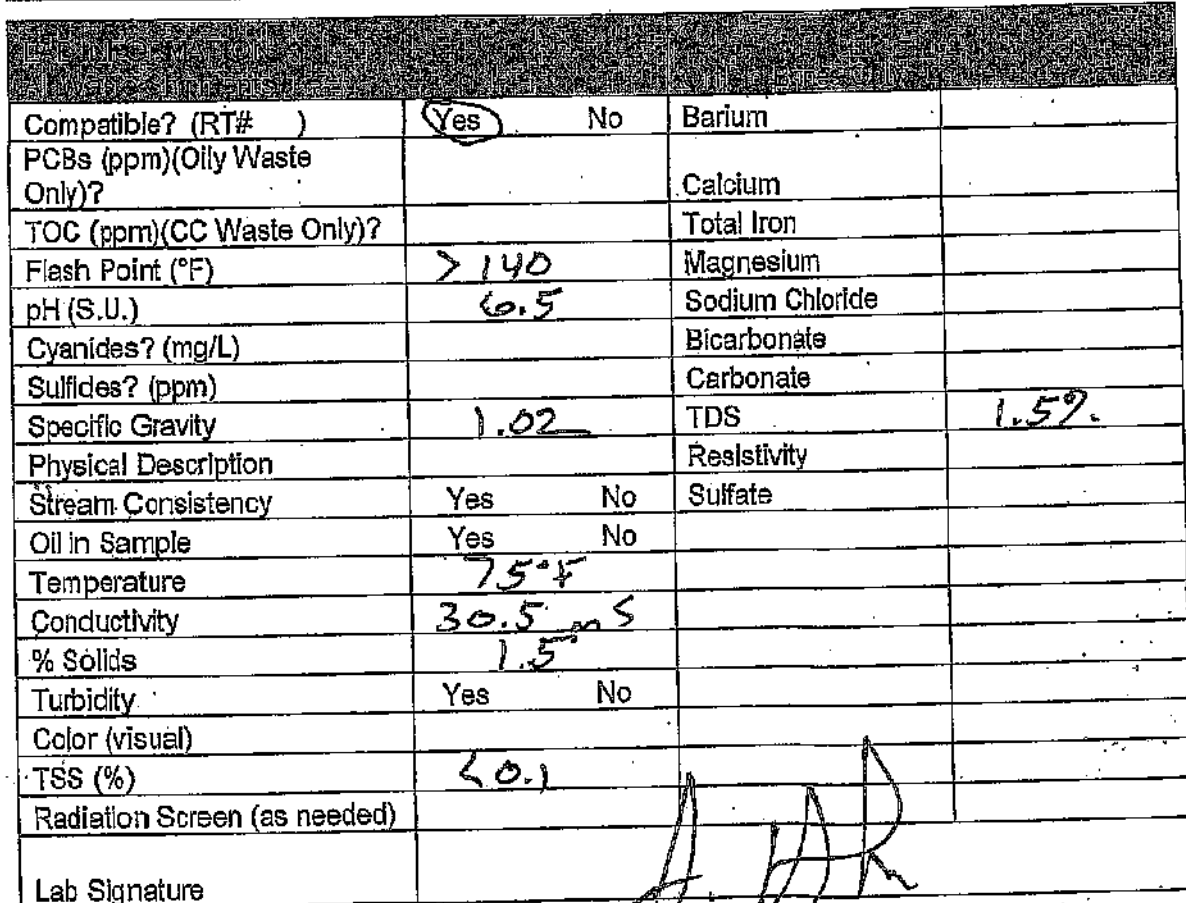 Compatible? (RT# ) Yes No Barium
PCBs (ppm)(Oily Waste
Only)? Calcium
TOC (ppm)(CC Waste Only)? Total Iron
Flash Point (°F) > 140 Magnesium
pH (S.U.) 6.5 Sodium Chloride
Cyanides? (mg/L) Bicarbonate
Sulfides? (ppm) Carbonate
Specific Gravity 1.02 TDS 1.5%
Physical Description Resistivity
Stream Consistency Yes No Sulfate
Oil in Sample Yes No
Temperature 75°F
Conductivity 30.5 mS
% Solids 1.5
Turbidity Yes No
Color (visual)
TSS (%) <0.1
Radiation Screen (as needed)
Lab Signature